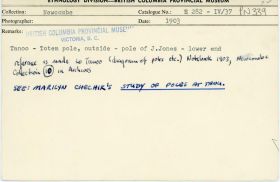 ETHNOLOGY DIVISION—BRITISH COLUMBIA PROVINCIAL MUSEUM
Collection: Newcombe Catalogue No.: E 252 - IV/37 PN 339
Photographer: Date: 1903
Remarks:
BRITISH COLUMBIA PROVINCIAL MUSEUM
VICTORIA, B. C.
Tanoo - Totem pole, outside - pole of J.Jones - lower end
reference is made to Tanoo (diagram of poles etc.) Notebook 1903, Newcombe
Collection 10 in Archives
SEE: MARILYN CHECHIK'S STUDY OF POLES AT TANU.